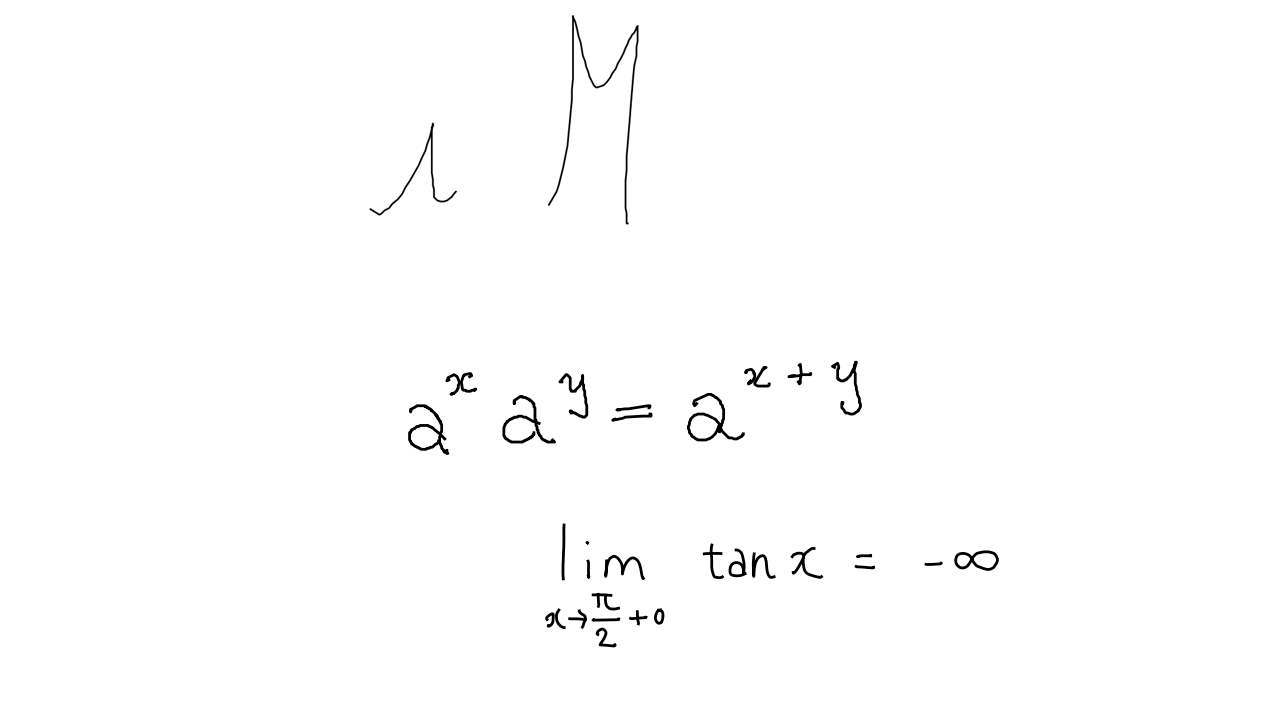 a^x a^y = a^{x+y}
lim_{x→π/2+0} tan x = -∞